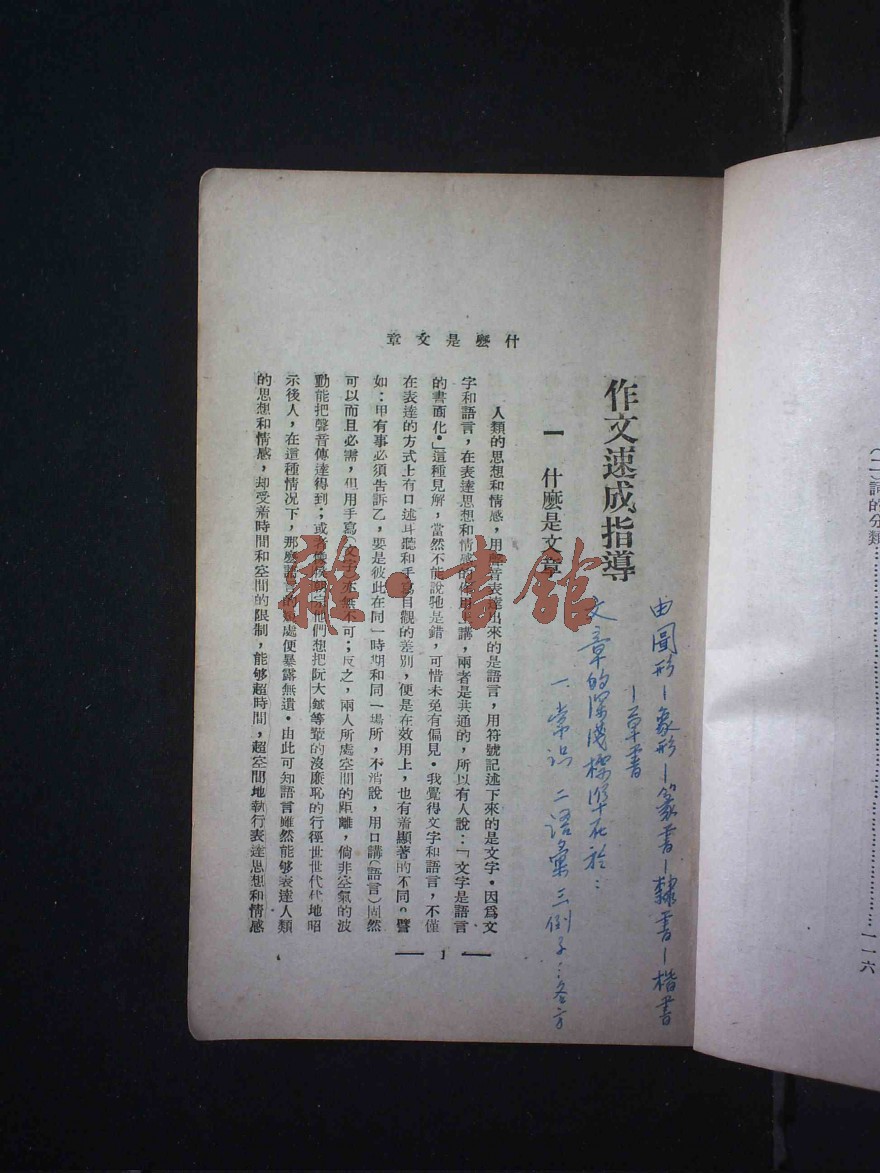 (二)詞的分類…………一一六
由圖形—象形—篆書—隸書—楷書
—草書
作文速成指導
文章的深淺標準在於：
一 什麼是文章
一.常识 二語彙 三例子：各方
什麼是文章
人類的思想和情感，用聲音表達出來的是語言，用符號記述下來的是文字。因爲文
字和語言，在表達思想和情感的作用上講，兩者是共通的，所以有人說：「文字是語言
的書面化。」這種見解，當然不能說牠是錯，可惜未免有偏見。我覺得文字和語言，不僅
在表達的方式上有口述耳聽和手寫目觀的差別，便是在效用上，也有着顯著的不同。譬
如：甲有事必須告訴乙，要是彼此在同一時期和同一場所，不消說，用口講(語言)固然
可以而且必需，但用手寫(文字)亦無不可；反之，兩人所處空間的距離，倘非空氣的波
動能把聲音傳達得到；或者他們想把阮大鋮等輩的沒廉恥的行徑世世代代地昭
示後人，在這種情况下，那麼語言的短處便暴露無遺。由此可知語言雖然能够表達人類
的思想和情感，却受着時間和空間的限制，能够超時間，超空間地執行表達思想和情感
— 1 —
雜·書館